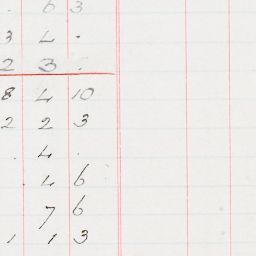 . 6 3
3 4 .
2 3 .
8 4 10
2 2 3
. 4 .
. 4 6
7 6
1 1 3